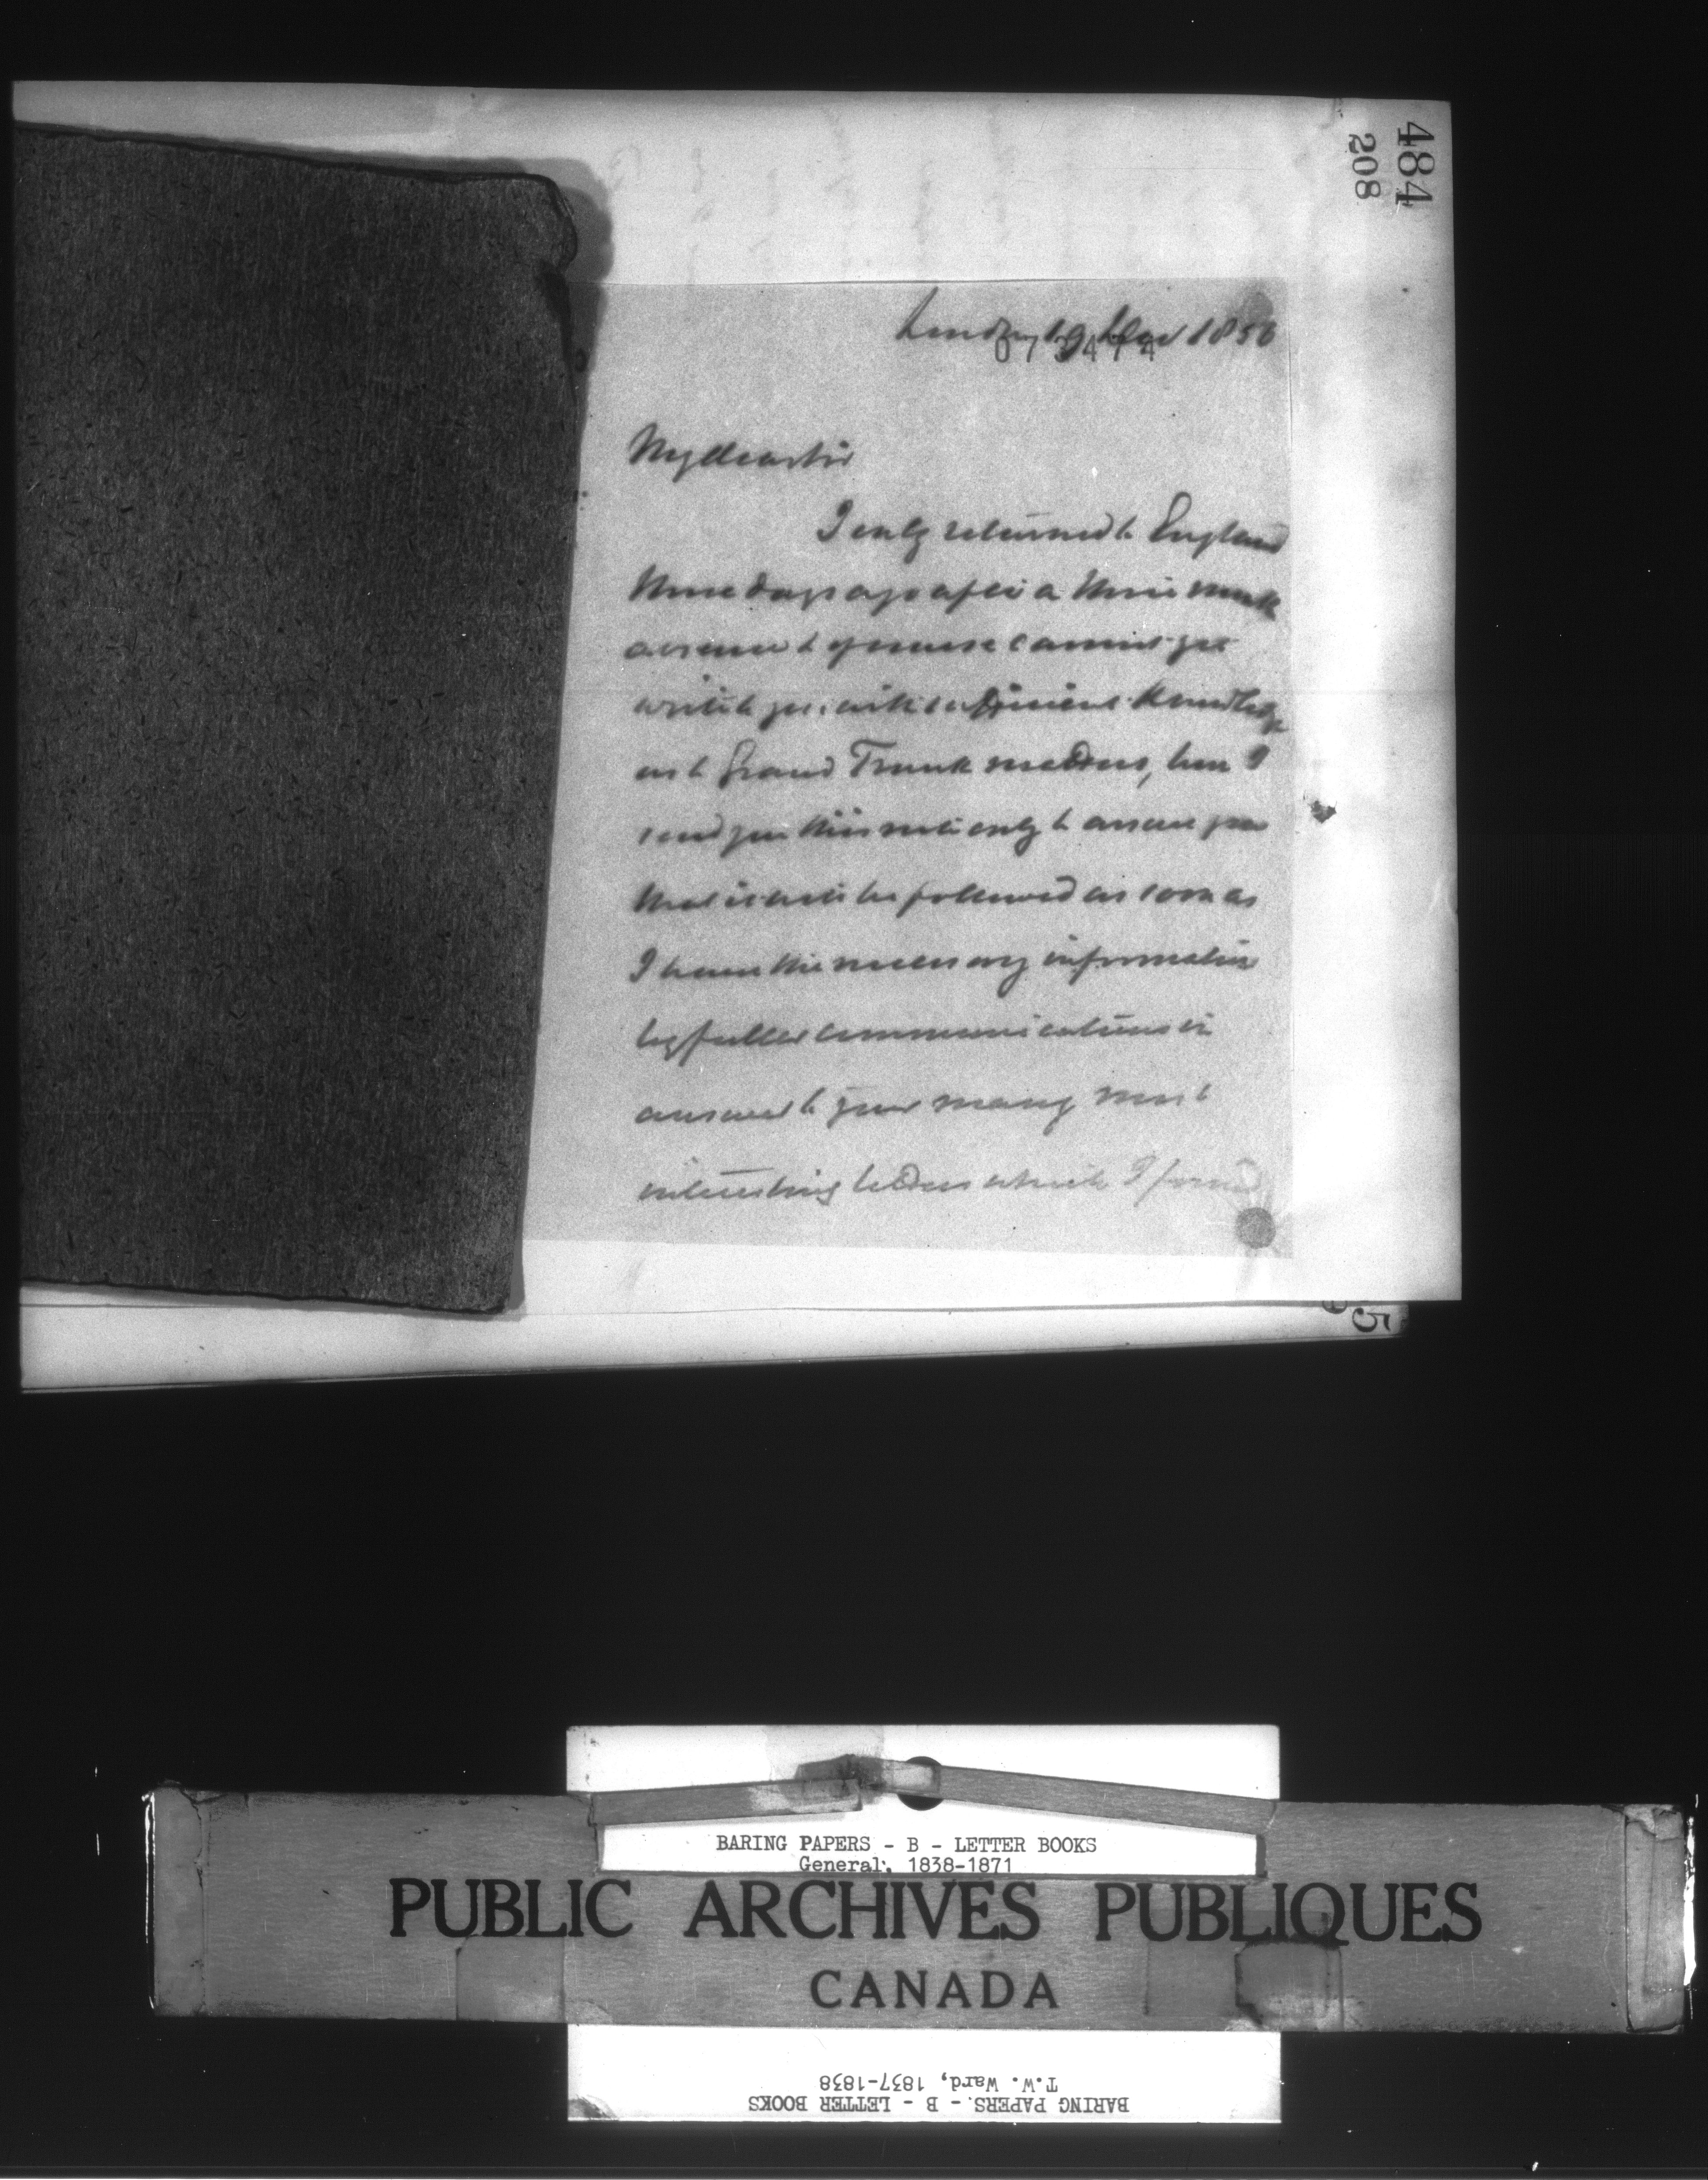 484
208
London 19 1856
073474
My dear Sir
I only returned to England
three days ago after a three week
absence & of course cannot yet
write to you with sufficient Knowledge
as to Grand Trunk matters, but I
send you this note only to assure you
that it will be followed as soon as
I have the necessary information
by fuller communications in
answer to your many most
interesting letters which I found
5
BARING PAPERS - B - LETTER BOOKS
General, 1838-1871
PUBLIC ARCHIVES PUBLIQUES
CANADA
BARING PAPERS. - B - LETTER BOOKS
T.W. Ward, 1837-1838